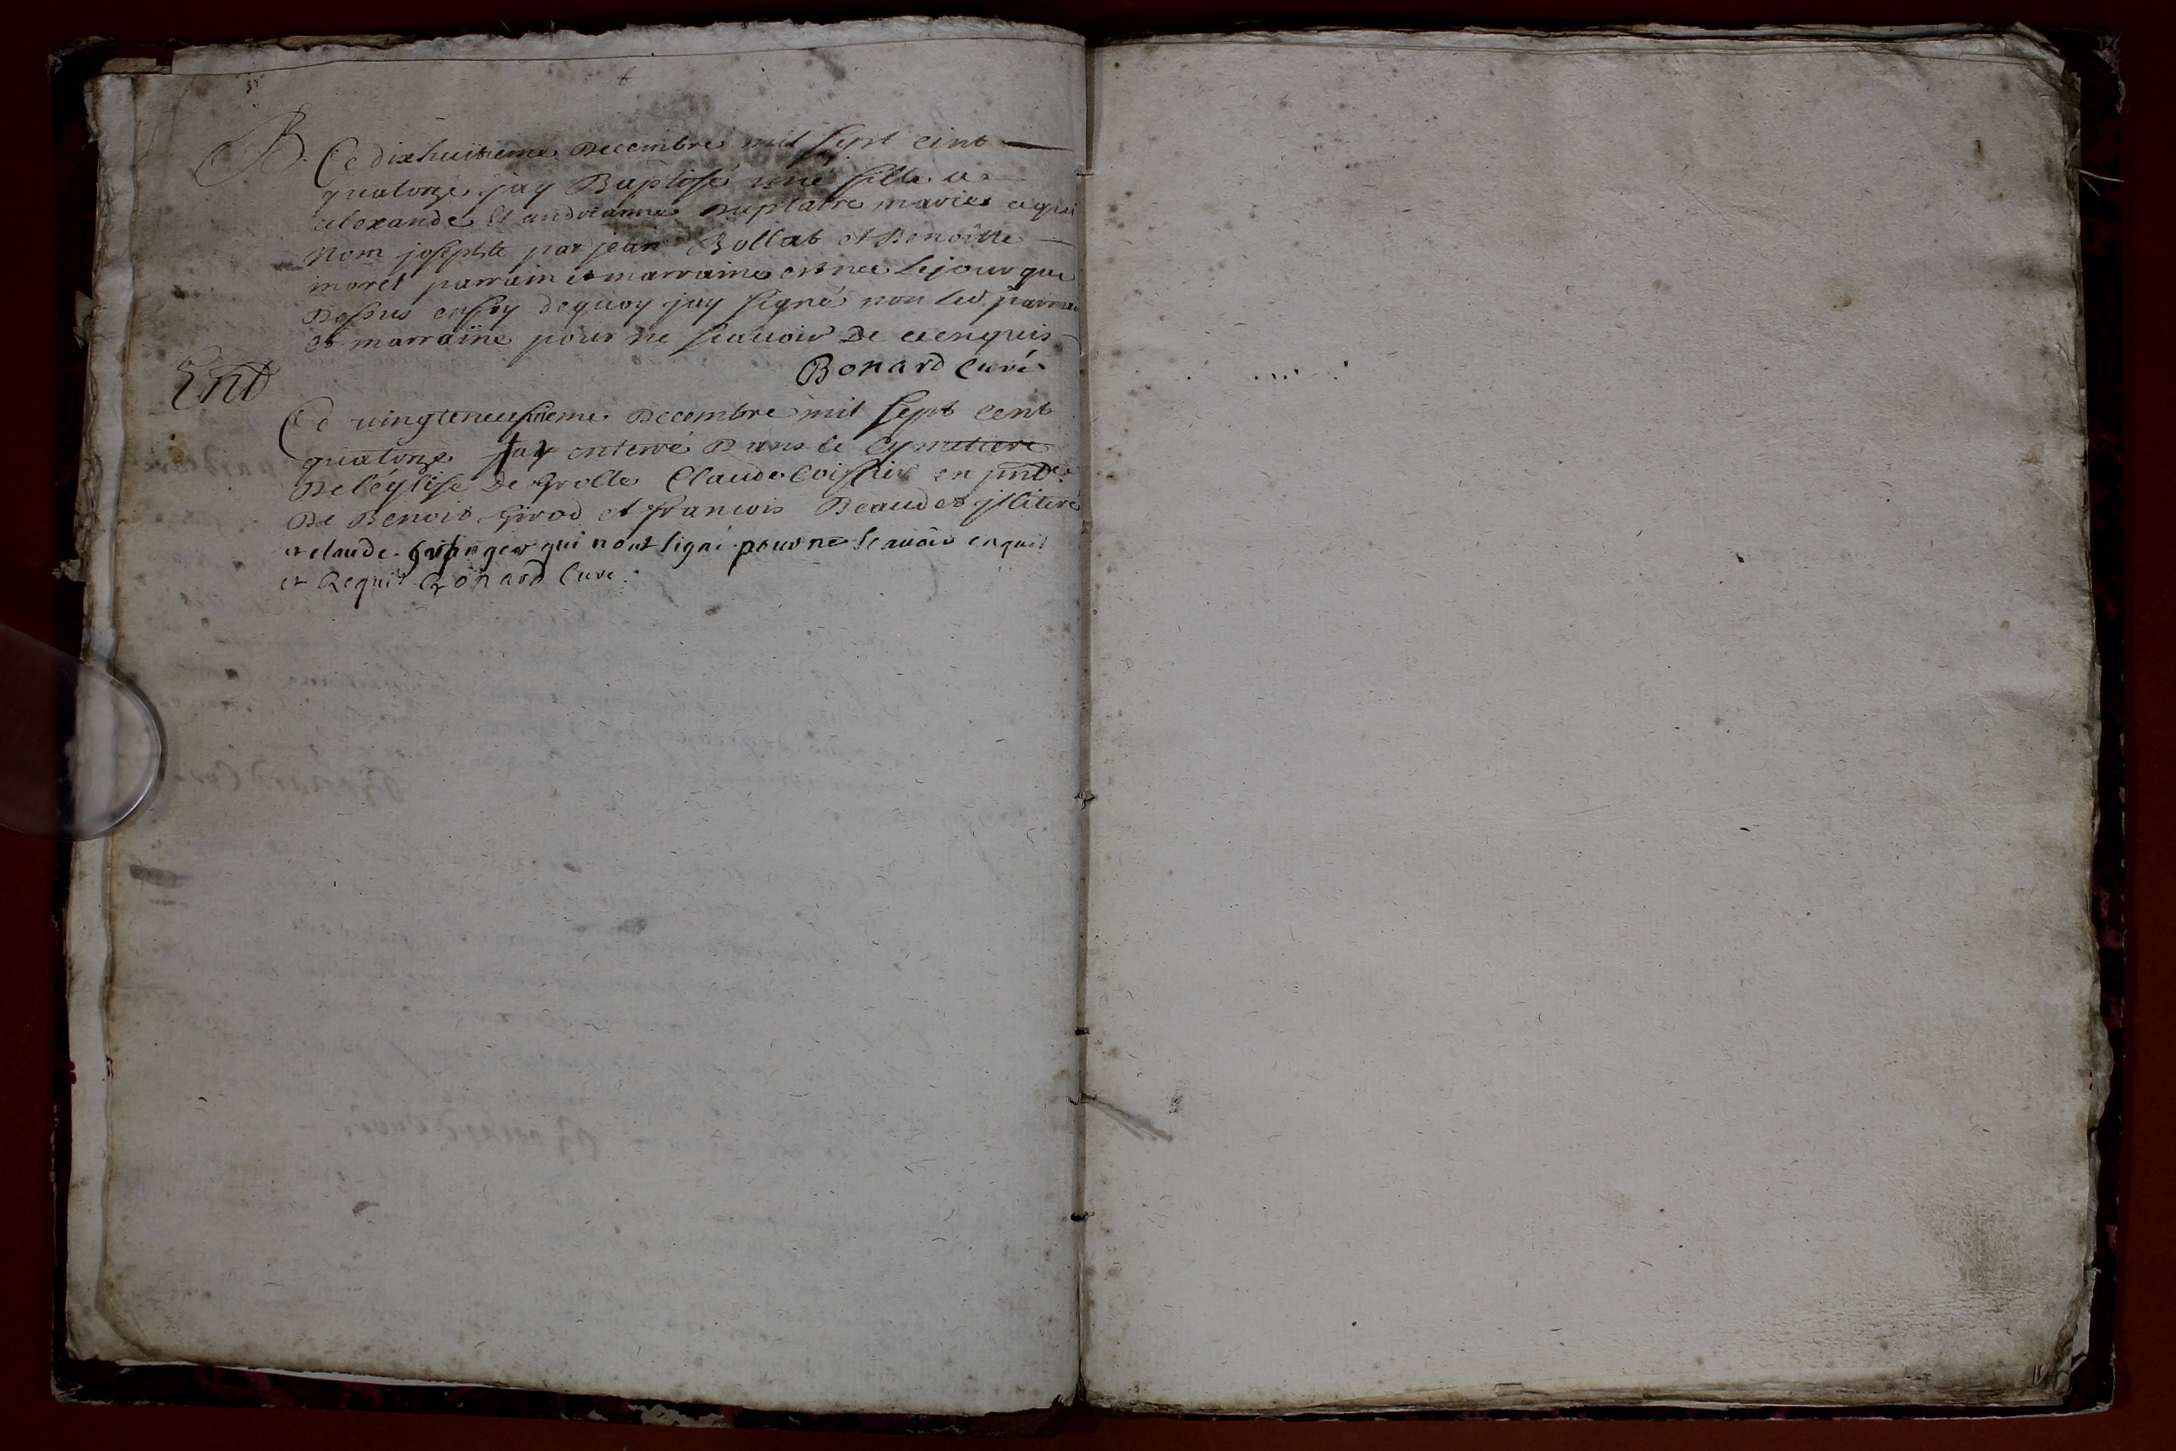 B. Ce dixhuitieme Decembre mil sept cent
quatorze jay Baptisé une fille a
alexande et andreanne Duplatre mariés a qui
Nom josephte par jean Bollat et Benoitte
morel parrain et marraine est nee le jour que
Dessus en foy de quoy jay signé non led parrain
et marraine pour ne scauoir De ce enquis
Bonard Curé
Ent
Ce uingtneufuieme Decembre mil sept cent
quatorze jay enterré Dans le Cymetiere
De l'église De Claude en pnce
De Benoit Girod et francois Beaudet jlliteré
et claude qui nont signé pour ne scauoir enquis
et Requis Bonard Cure